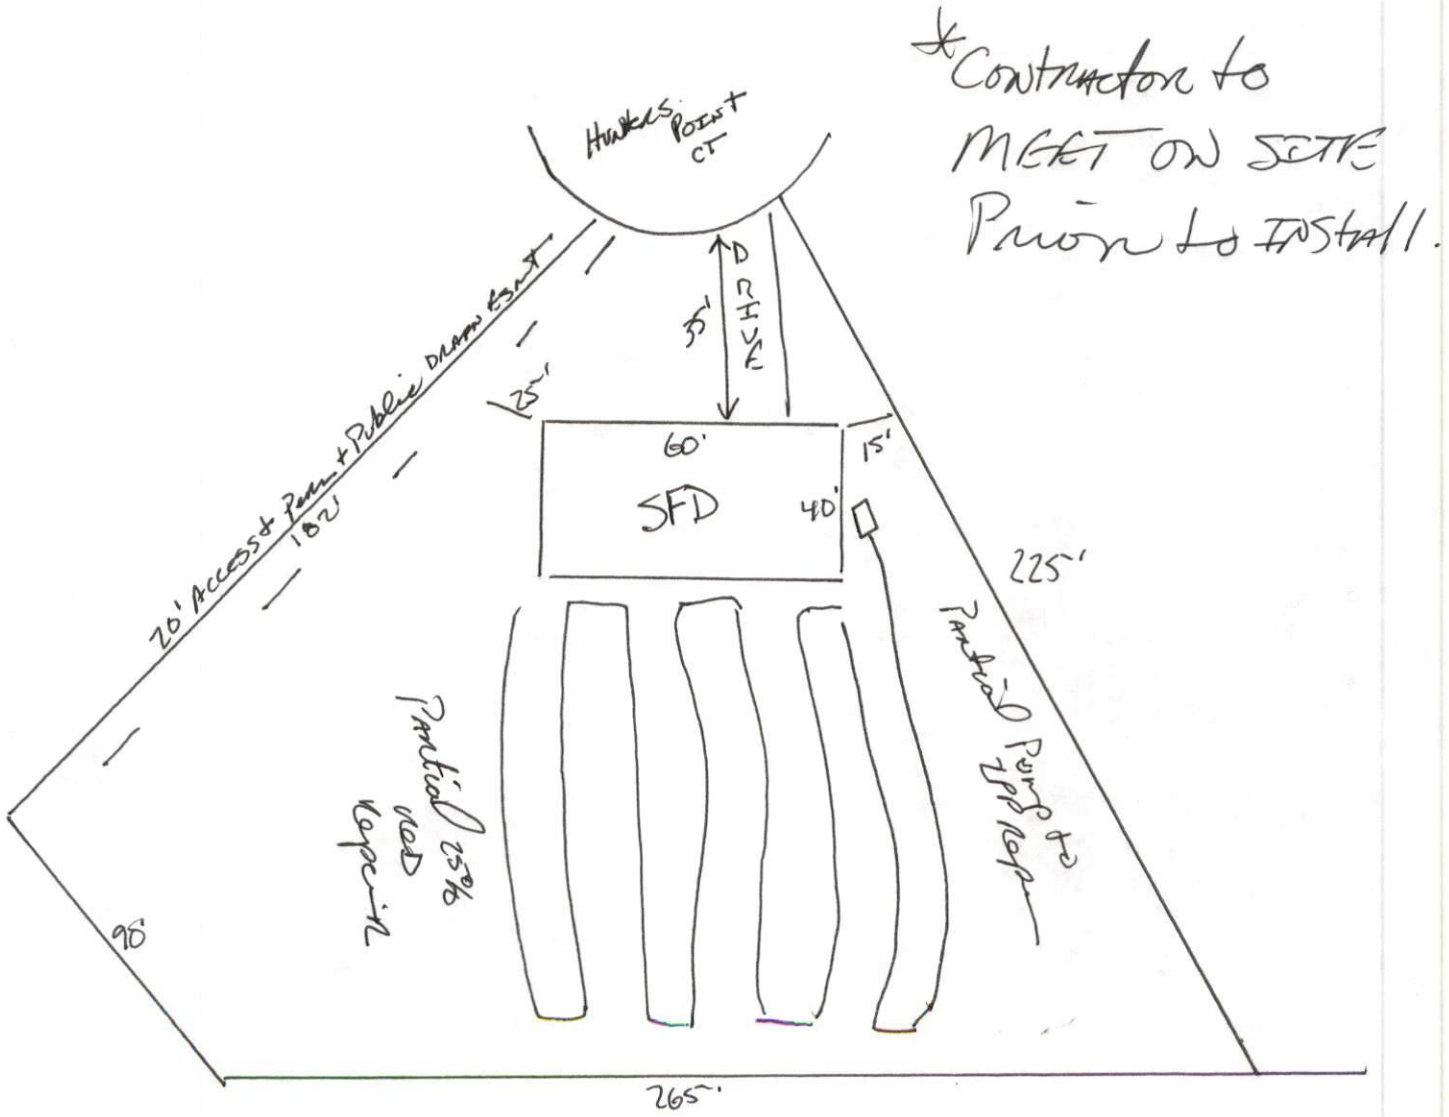 * Contractor to
MEET ON SITE
Prior to INStall.
Hunters
POINT
CT
20' ACCESS + Perm + Public DRAIN ESMT
DRIVE
35'
25'
60'
15'
SFD
40'
182'
225'
Partial 25%
RED
Repair
Partial Pump to
LPP Repair
98'
265'